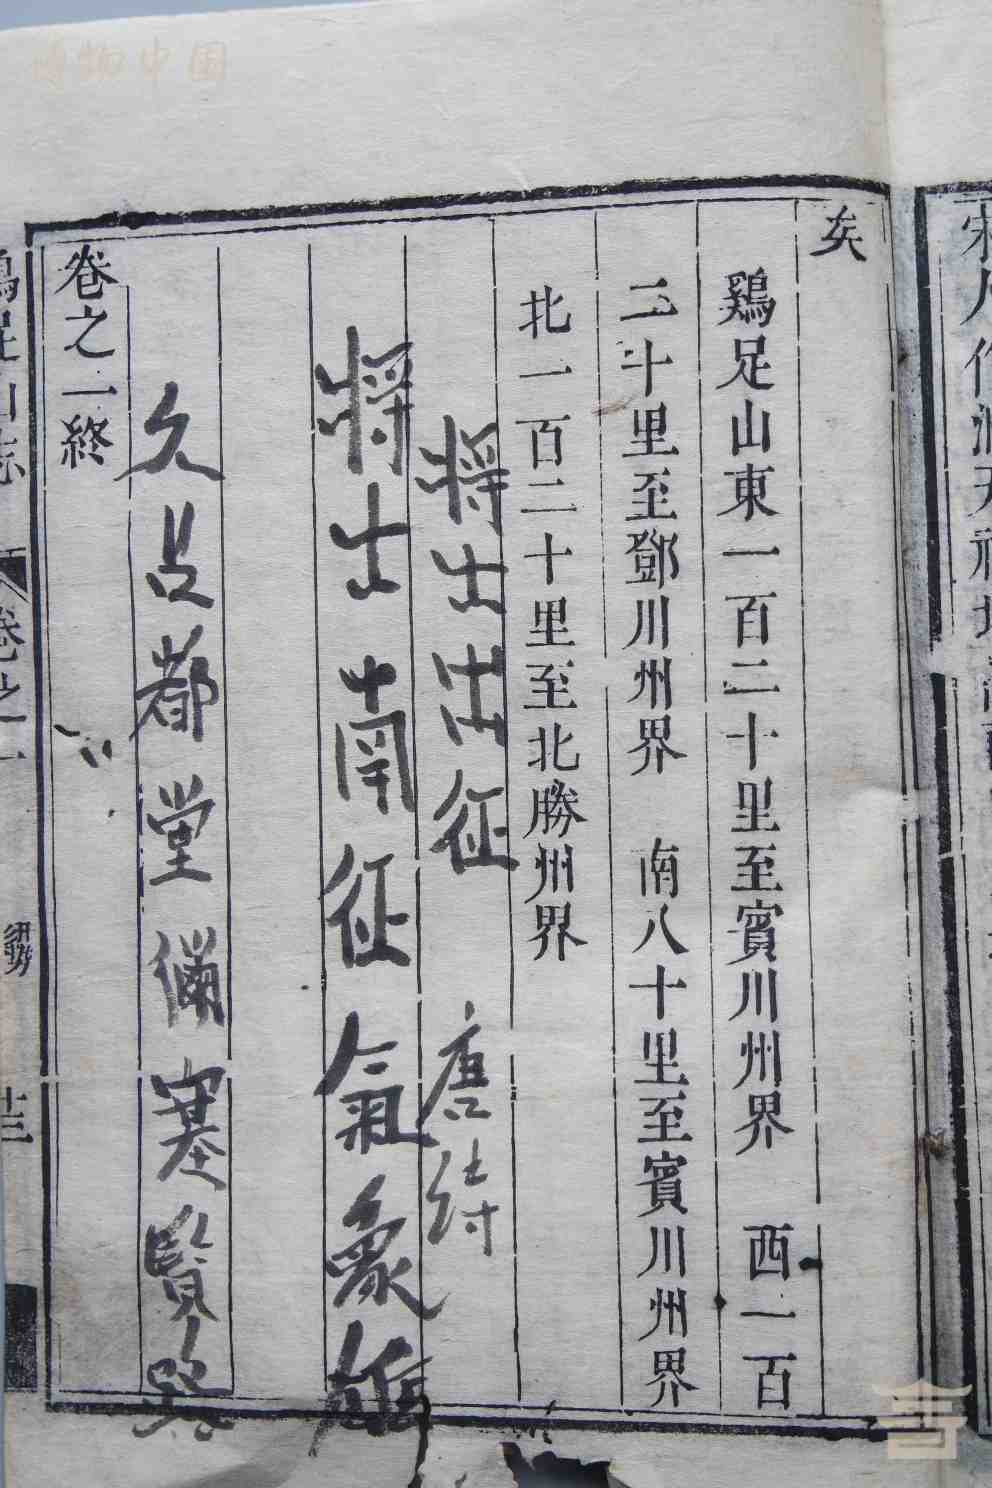 矣
鷄足山東一百二十里至賓川州界　西一百
二十里至鄧川州界　南八十里至賓川州界
北一百二十里至北勝州界
將士出征　唐
將士南征氣象雄
久
都堂
塞賢
卷之一終
卷之一
博物中国